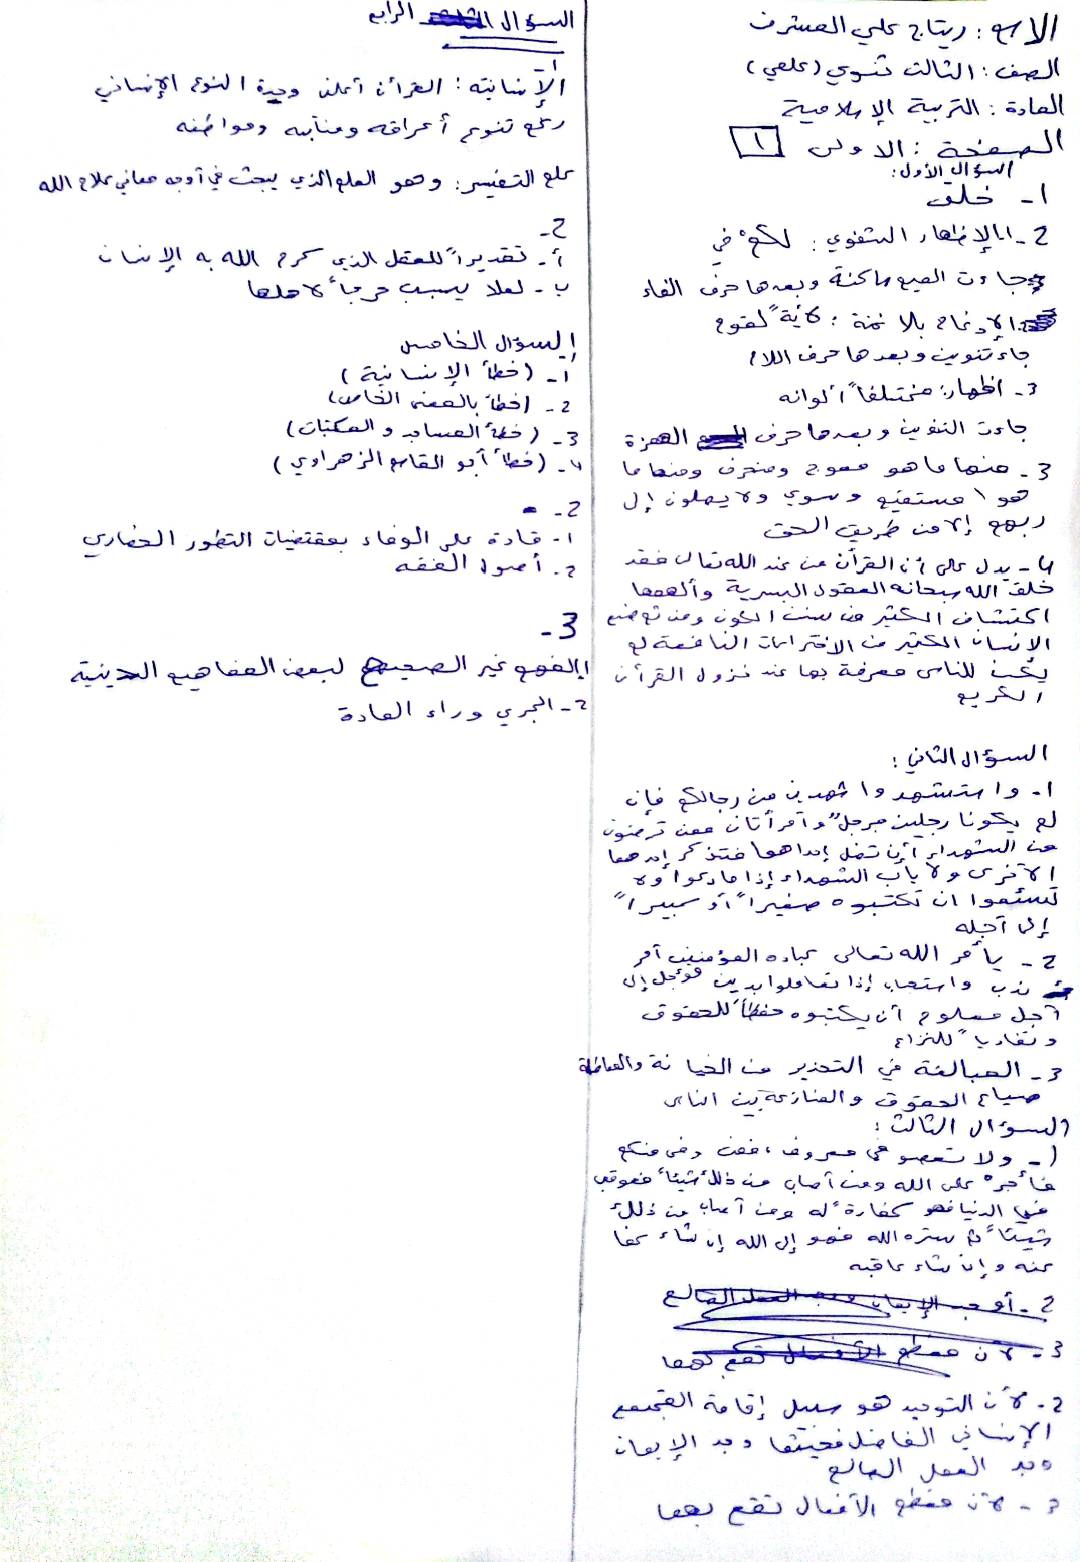 الاسم : ريتاج علي المشرف
الصف : الثالث ثنوي (علمي)
المادة : التربية الإسلامية
الصفحة : الاولى 1
السؤال الأول :
1- خلق
2- الإظهار الشفوي : لكم في
جاءت الميم ساكنة وبعدها حرف الفاء
الإدغام بلا غنة : لآية لقوم
جاء تنوين وبعدها حرف اللام
3- اظهار : مختلفاً ألوانه
جاءت التنوين وبعدها حرف الهمزة
3- منها ما هو معوج ومنحرف ومنها ما
هو مستقيم وسوي ولا يصلون إلى
ربهم إلا من طريق الحق
4- يدل على أن القرآن من عند الله تعالى فقد
خلق الله سبحانه العقول البشرية وألهمها
اكتشاف الكثير من سنن الكون ومن ثم صنع
الانسان الكثير من الاختراعات النافعة لم
يكن للناس معرفة بها عند نزول القرآن
الكريم
السؤال الثاني :
1- واستشهدوا شهدين من رجالكم فإن
لم يكونا رجلين فرجل وامرأتان ممن ترضون
من الشهداء أن تضل إحداهما فتذكر إحدهما
الأخرى ولا يأب الشهداء إذا ما دعوا ولا
تسئموا ان تكتبوه صغيراً أو كبيراً
إلى أجله
2- يأمر الله تعالى عباده المؤمنين أمر
ندب واستحباب إذا تعاملوا بدين مؤجل إلى
أجل معلوم أن يكتبوه حفظاً للحقوق
وتفاديا للنزاع
3- المبالغة في التحذير من الخيانة والمماطلة
ضياع الحقوق والمنازعة بين الناس
السؤال الثالث :
1- ولا تعصو في معروف ، فمن وفى منكم
فأجره على الله ومن أصاب من ذلك شيئاً فعوقب
في الدنيا فهو كفارة له ومن أصاب من ذلك
شيئاً ثم ستره الله فهو إلى الله إن شاء عفا
عنه وإن شاء عاقبه
2- أوجب الإيمان وجد العمل الصالح
3- لأن معظم الأفعال تقع بهما
2- لأن التوحيد هو سبيل إقامة المجتمع
الإنساني الفاضل فحيثما وجد الإيمان
وجد العمل الصالح
3- لأن معظم الأفعال تقع بهما
السؤال الرابع
1-
الإنسانية : القرأن أعلن وحدة النوع الإنساني
رغم تنوع أعراقه ومنابته ومواطنه
علم التفسير : وهو العلم الذي يبحث في أوجه معاني كلام الله
2-
أ- تقديراً للعقل الذي كرم الله به الإنسان
ب- لعلا يسبب حرجاً لاهلها
السؤال الخامس
1- (خطأ الإنسانية)
2- (خطأ بالمعنى الخاص)
3- (خطأ المساجد و المكتبات)
4- (خطأ أبو القاسم الزهراوي)
2-
1- قادة على الوفاء بمقتضيات التطور الحضاري
2- أصول الفقه
3-
1- الفهم غير الصحيح لبعض المفاهيم الدينية
2- الجري وراء المادة